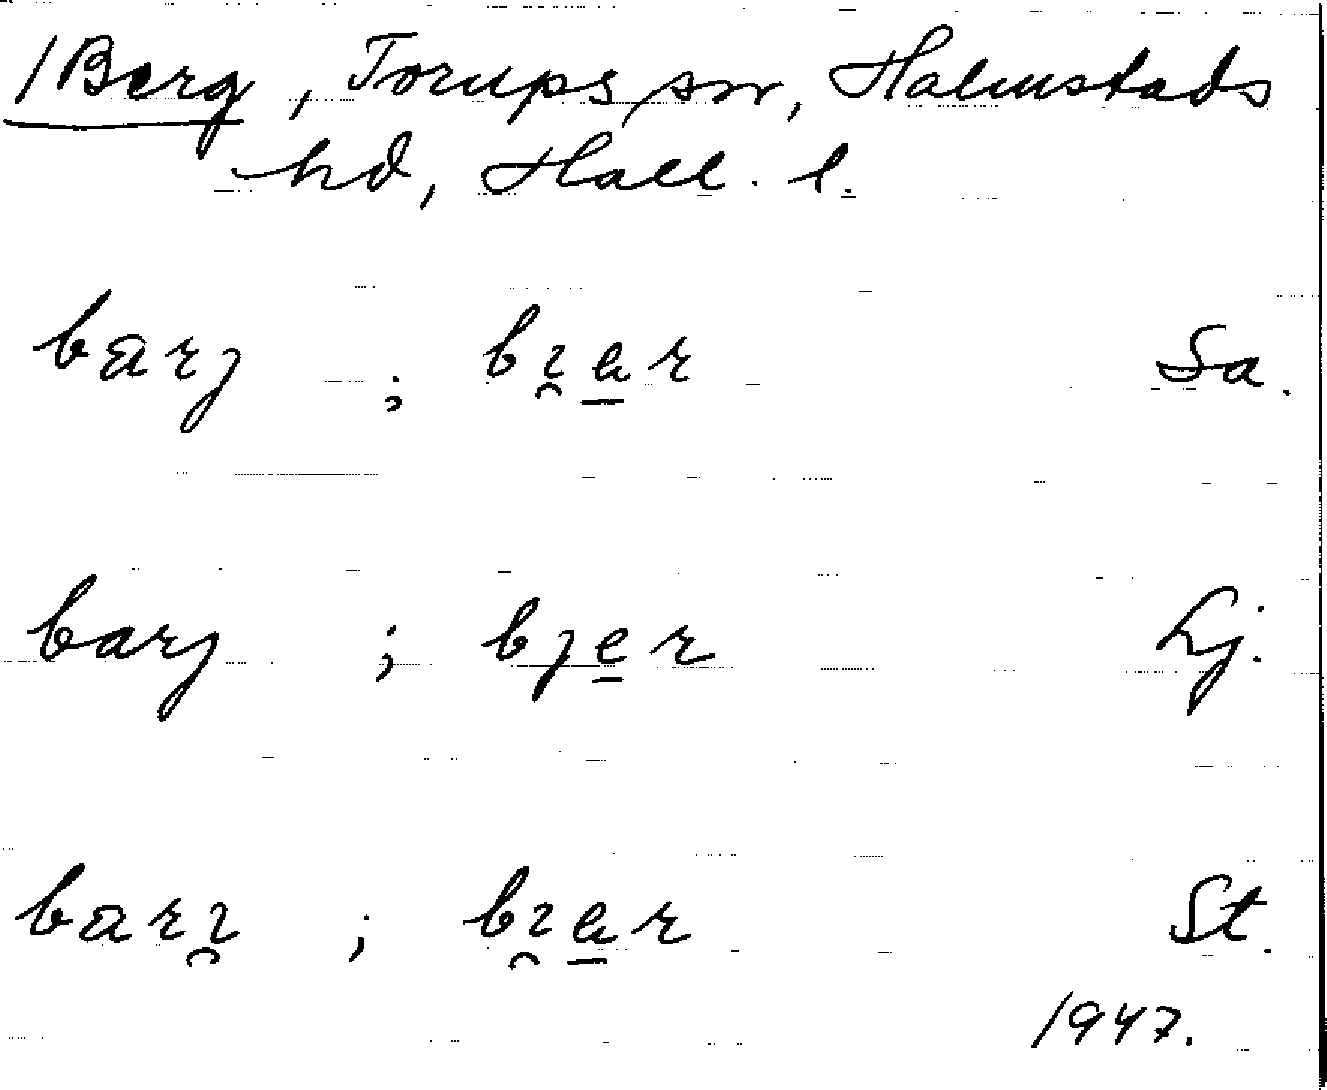 /Berg, Torups sn, Halmstads
hd, Hall. l.
barj ; bı̯a̱r Sa.
barj ; bje̱r Lj.
barı̯ ; bı̯a̱r St.
1947.